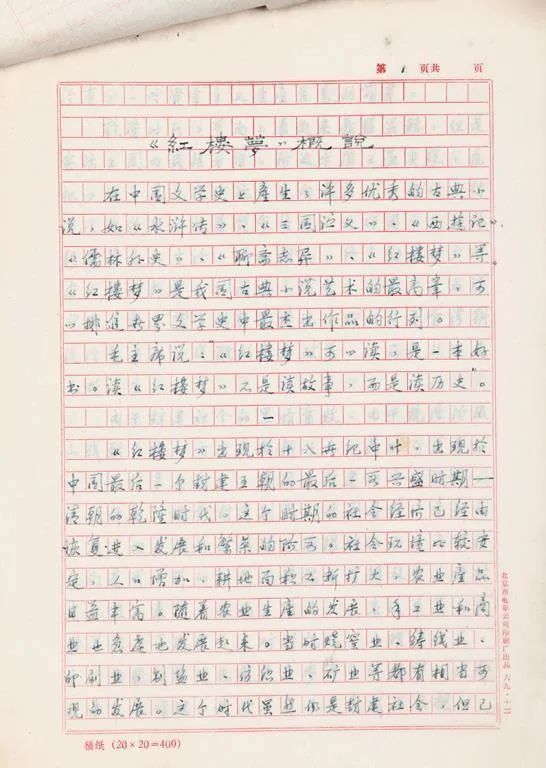 第 1 页共 页
《紅樓夢》概說
在中国文学史上產生了许多优秀的古典小
说，如《水浒传》、《三国演义》、《西遊记》、
《儒林外史》、《聊斋志异》、《红楼梦》等
《红楼梦》是我国古典小说艺术的最高峯，可
以排進世界文学史中最杰出作品的行列。
毛主席说：《红楼梦》可以读，是一本好
书。读《红楼梦》不是读故事，而是读历史。
一
《红楼梦》出现於十八世纪中叶，出现於
中国最后一个封建王朝的最后一个兴盛时期—
清朝的乾隆时代。这个时期的社会经济已经由
恢复進入发展和繁荣的阶段。社会环境比较安
定，人口增加，耕地面积不断扩大，农业產品
日益丰富。随着农业生產的发展，手工业和商
业也急剧地发展起来。当时
印刷业、制盐业、纺织业、矿业等都有相当可
观的发展。这个时代虽然仍是封建社会，但已
稿纸（20×20＝400）
北京市电车公司印刷厂出品 六九·十二